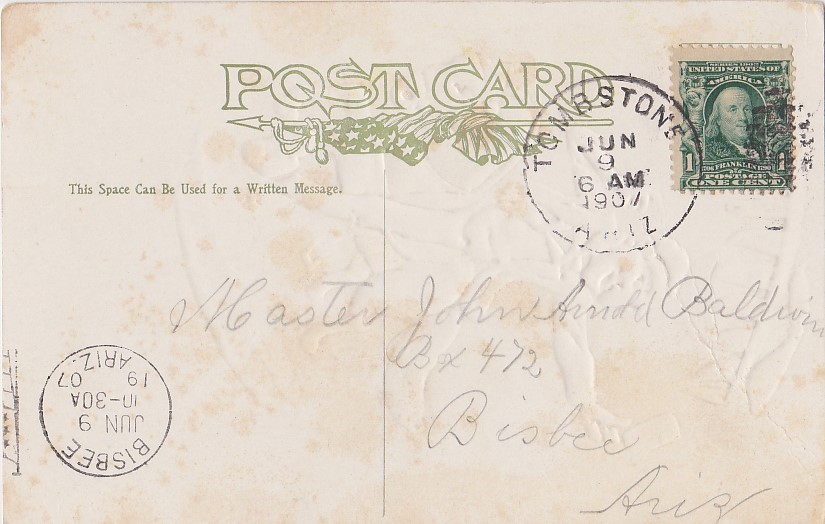 POST CARD
This Space Can Be Used for a Written Message.
SERIES 1902
UNITED STATES OF
AMERICA
1 1
1706 FRANKLIN 1790
POSTAGE
ONE CENT
TOMBSTONE
JUN
9
6 AM
1907
ARIZ
Master John Arnold Baldwin
Bx 472
Bisbee
Ariz
BISBEE
JUN 9
10-30A
19 07
ARIZ.